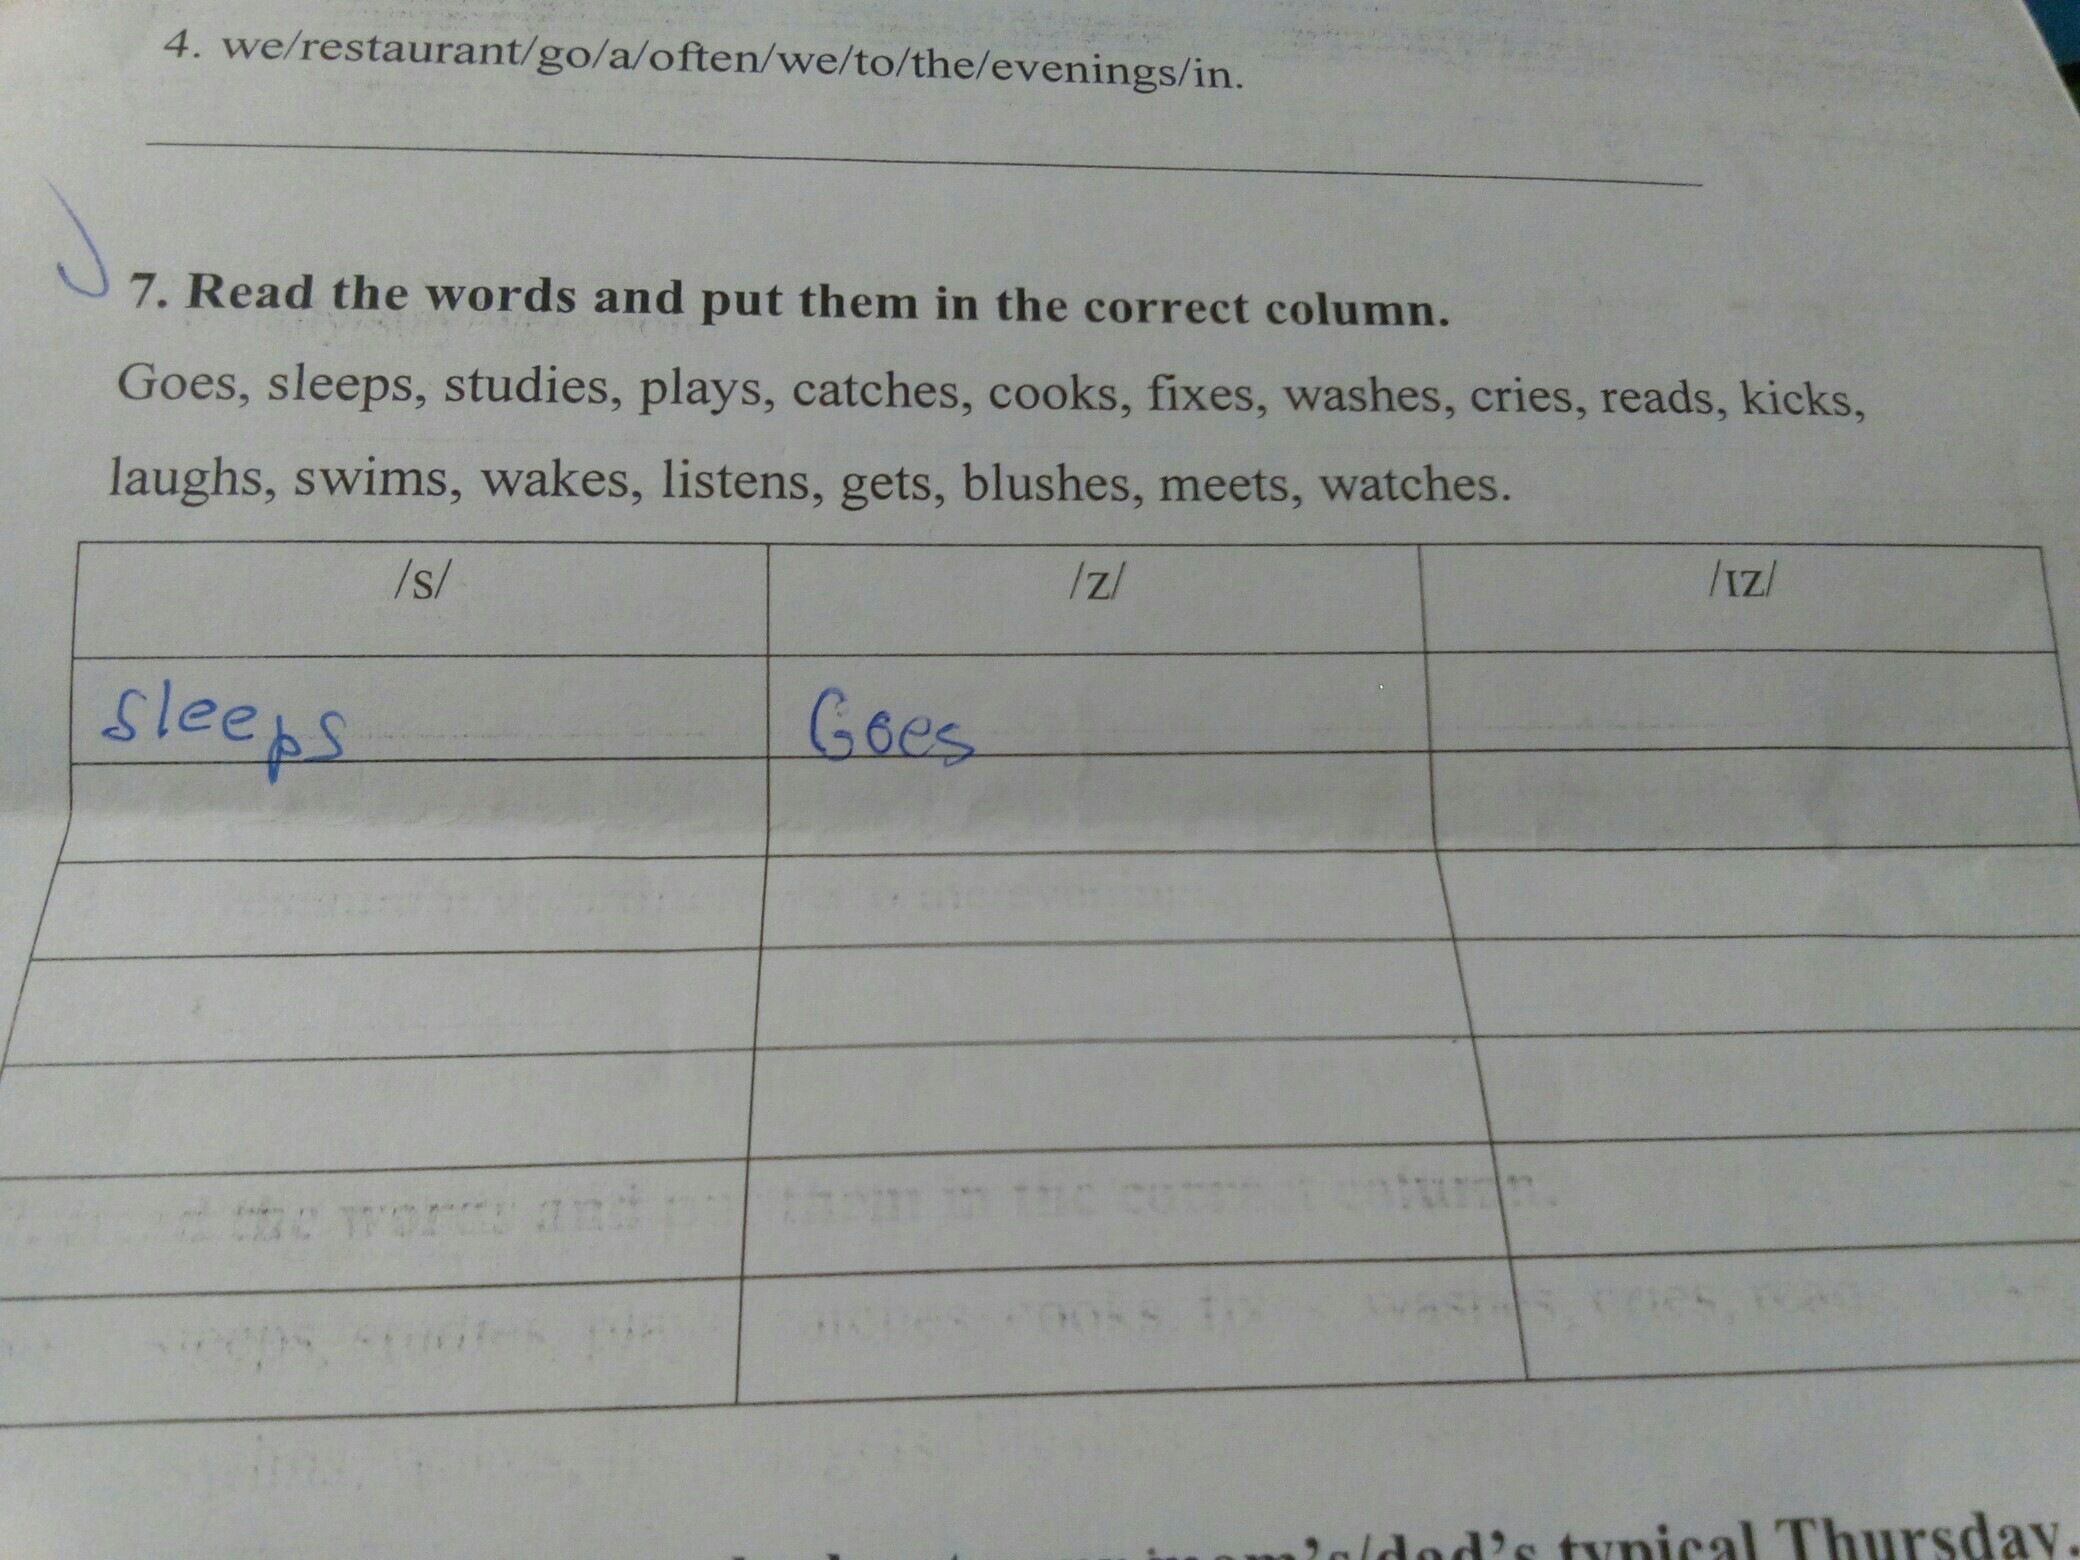 4. we/restaurant/go/a/often/we/to/the/evenings/in.
7. Read the words and put them in the correct column.
Goes, sleeps, studies, plays, catches, cooks, fixes, washes, cries, reads, kicks,
laughs, swims, wakes, listens, gets, blushes, meets, watches.
/s/ /z/ /ɪz/
Sleeps Goes
mom's/dad's typical Thursday.